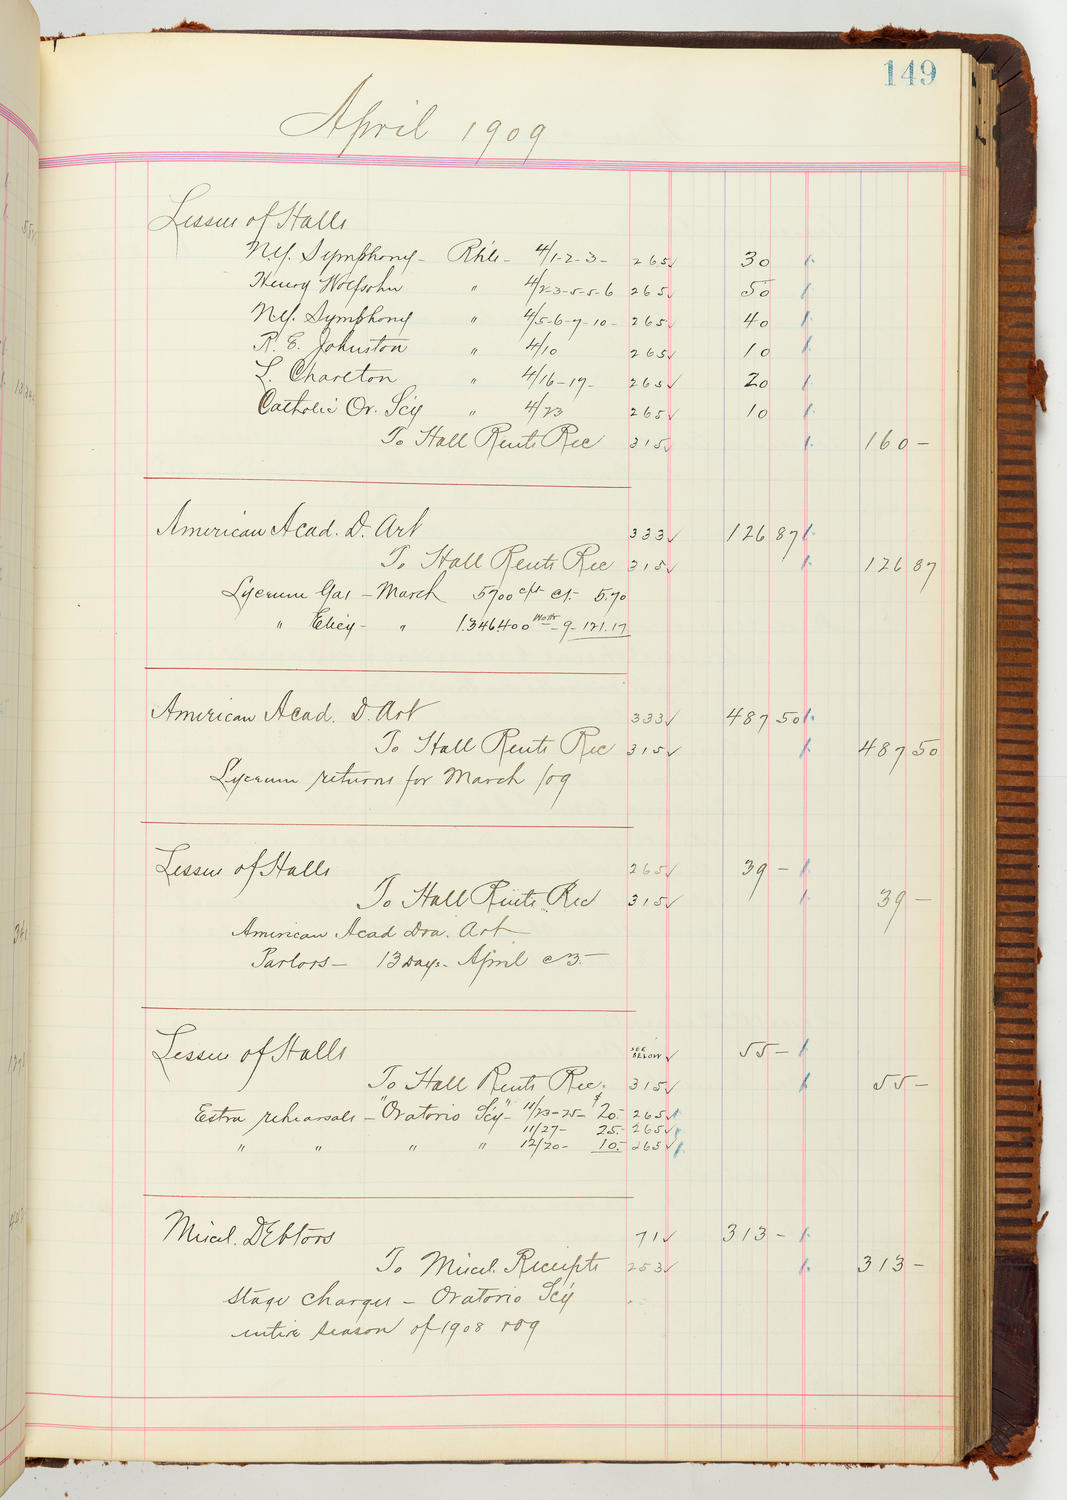 149
April 1909
Lessees of Halls
N.Y. Symphony - Rh'ls - 4/1-2-3- 265 ✓ 30
Henry Wolfsohn " 4/2-3-5-5-6 265 ✓ 50
N.Y. Symphony " 4/5-6-7-10- 265 ✓ 40
R. E. Johnston " 4/10 265 ✓ 10
L. Charlton " 4/16-17- 265 ✓ 20
Catholic Or. Sc'y " 4/23 265 ✓ 10
To Hall Rents Rec 315 ✓ 160 -
American Acad. D. Art 333 ✓ 126 87
To Hall Rents Rec 315 ✓ 126 87
Lyceum Gas - March 5700 c/ft c/- 5.70
" Elicy - " 1.346.400 Watts - 9 - 121.17
American Acad. D. Art 333 ✓ 487 50
To Hall Rents Rec 315 ✓ 487 50
Lyceum returns for March /09
Lessees of Halls 265 ✓ 39 -
To Hall Rents Rec 315 ✓ 39 -
American Acad Dra. Art
Parlors - 13 Days - April @ 3.-
Lessees of Halls SEE BELOW ✓ 55 -
To Hall Rents Rec. 315 ✓ 55 -
Extra rehearsals - "Oratorio Sc'y" - 11/23-25- $20.- 265 ✓
11/27- 25.- 265 ✓
" " " " 12/20- 10.- 265 ✓
Miscel. Debtors 71 ✓ 313 -
To Miscel. Receipts 253 ✓ 313 -
Stage charges - Oratorio Sc'y
entire season of 1908 + 09